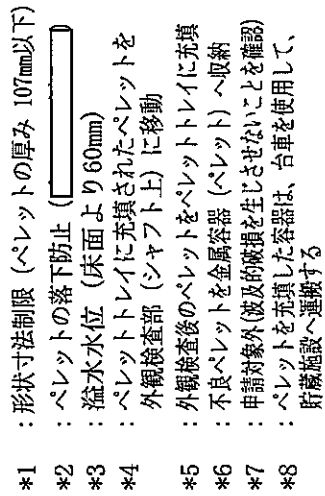 *1 ：形状寸法制限（ペレットの厚み 107mm以下）
*2 ：ペレットの落下防止（
*3 ：溢水水位（床面より60mm）
*4 ：ペレットトレイに充填されたペレットを
外観検査部（シャフト上）に移動
*5 ：外観検査後のペレットをペレットトレイに充填
*6 ：不良ペレットを金属容器（ペレット）へ収納
*7 ：申請対象外(波及的破損を生じさせないことを確認)
*8 ：ペレットを充填した容器は、台車を使用して、
貯蔵施設へ運搬する